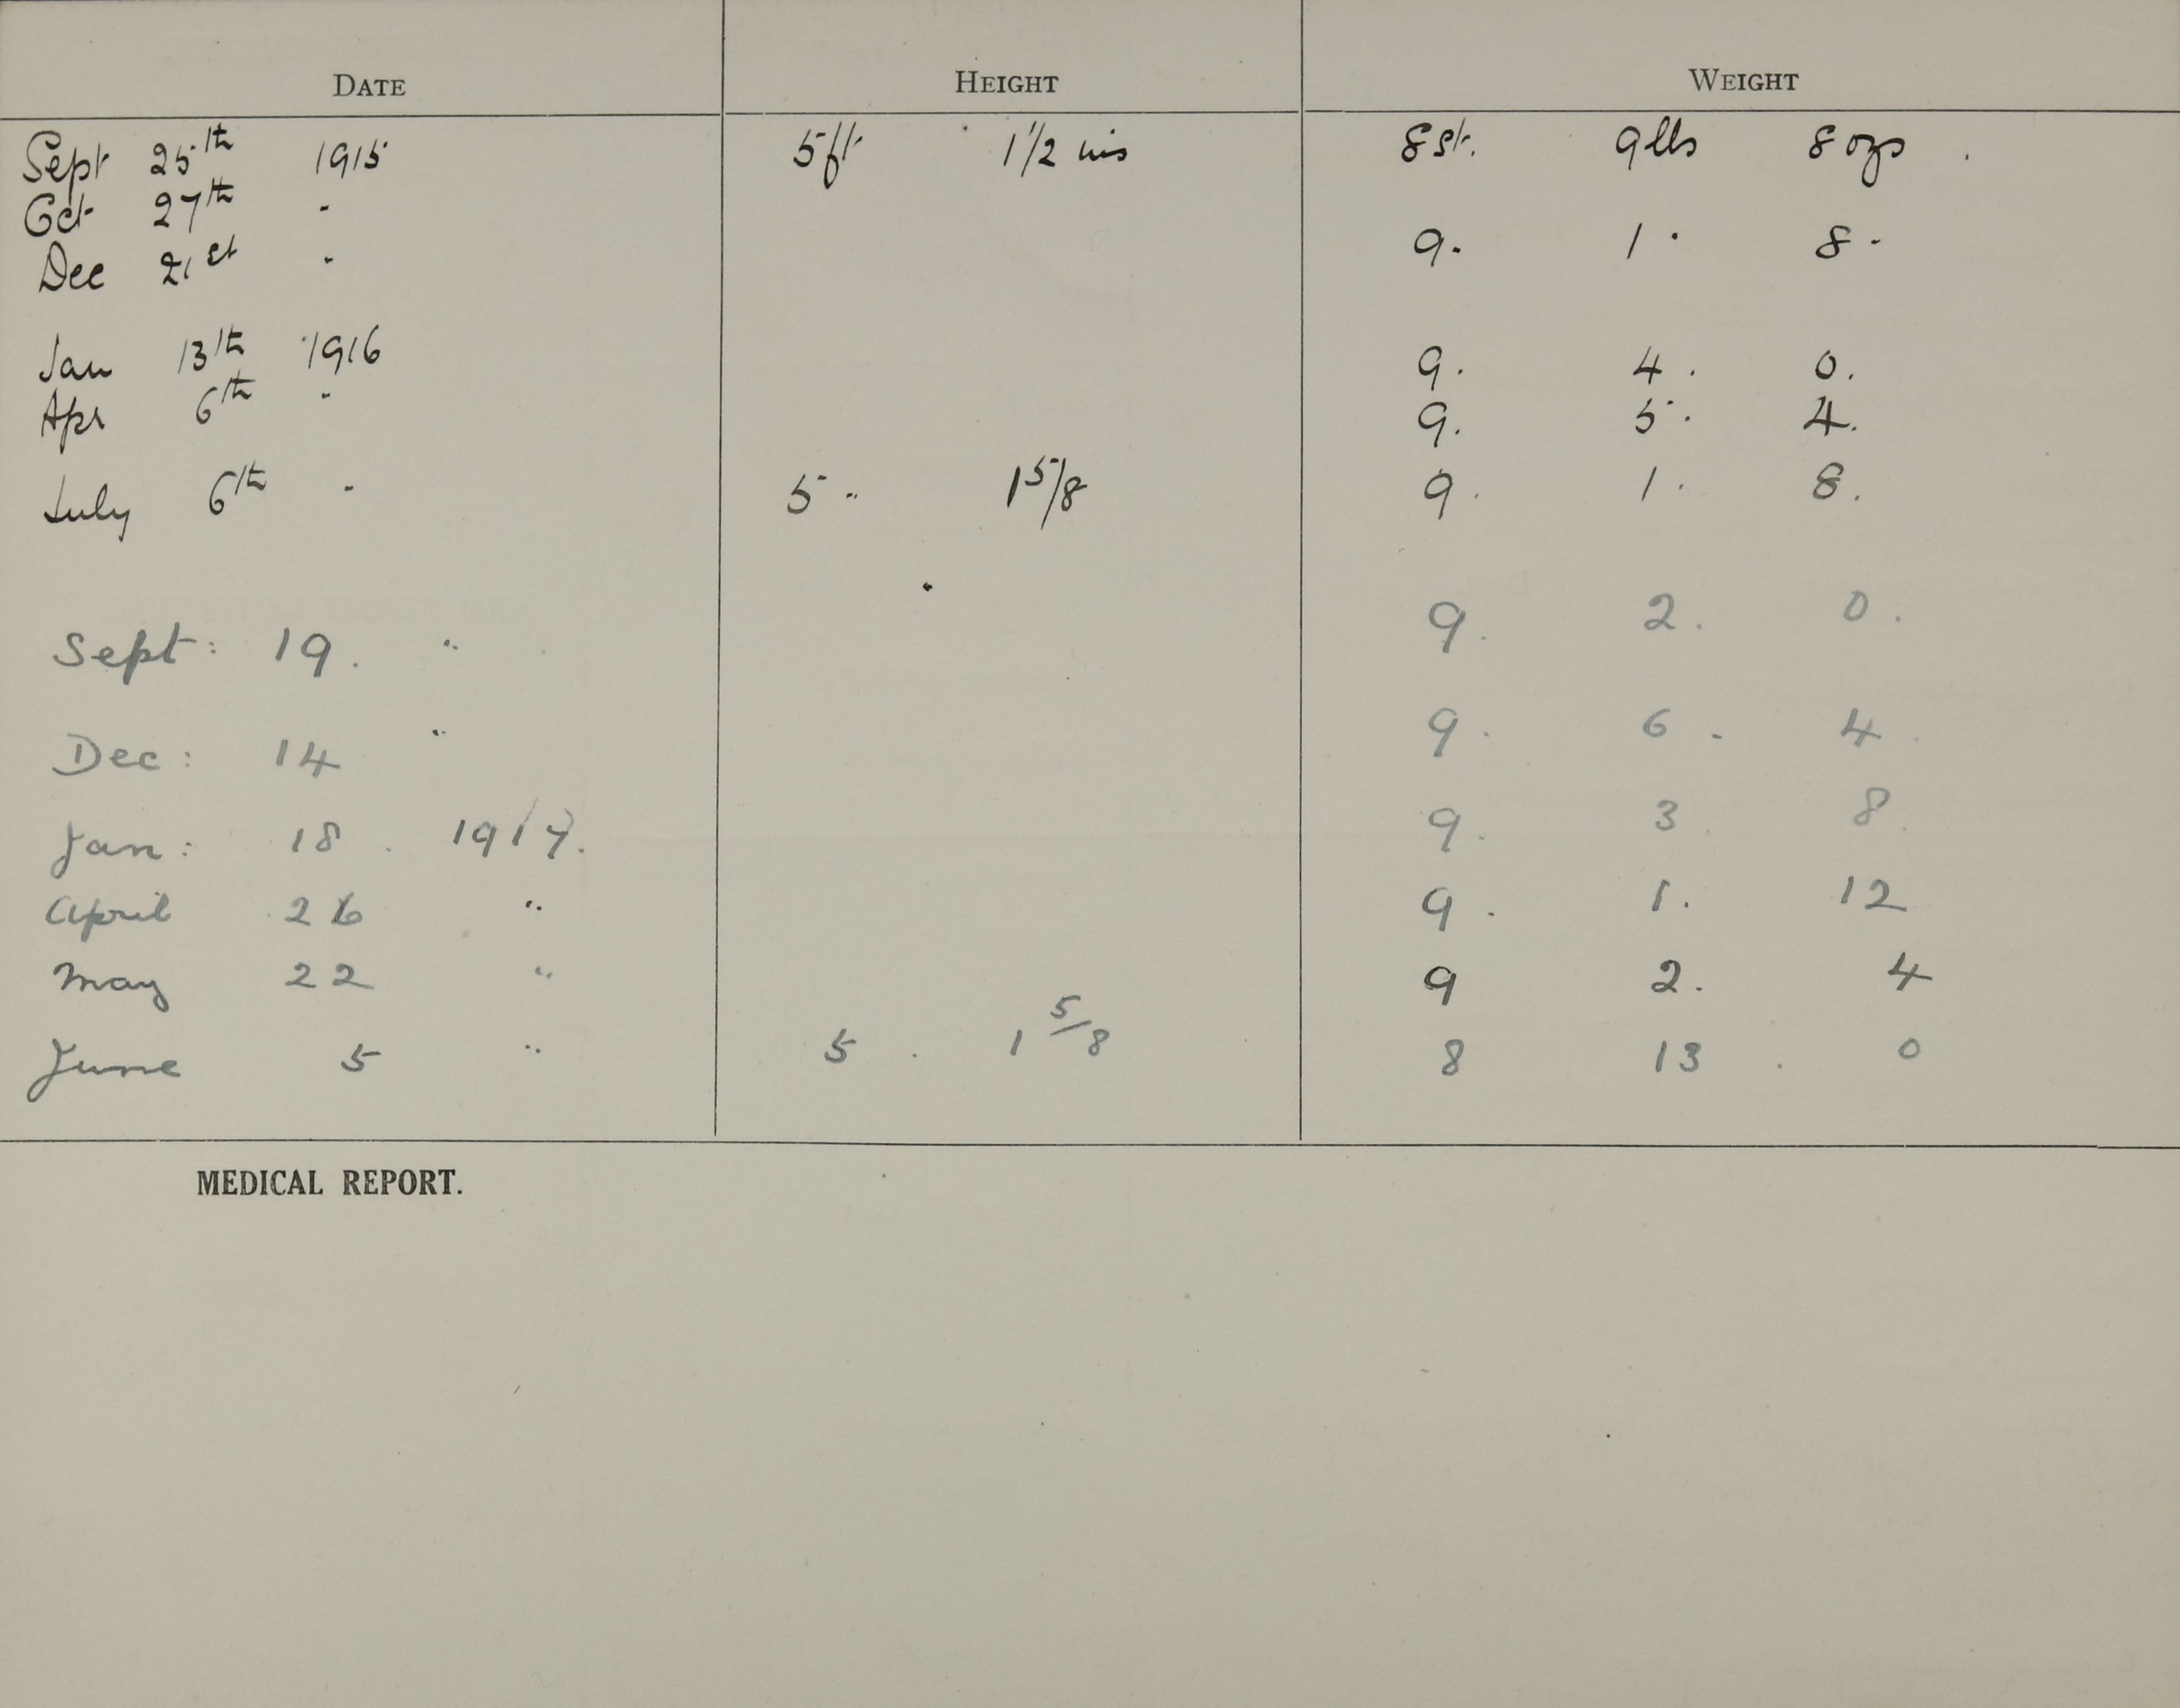 DATE HEIGHT WEIGHT
Sept 25th 1915 5ft 1 1/2 ins 8st. 9lbs 8ozs.
Oct 27th "
Dec 21st " 9. 1. 8.
Jan 13th 1916 9. 4. 0.
Apr 6th " 9. 5. 4.
July 6th " 5 " 1 5/8 9. 1. 8.
Sept: 19. " 9. 2. 0.
Dec: 14 " 9. 6. 4.
Jan: 18. 1917. 9. 3. 8.
April 26 " 9. 1. 12
May 22 " 9 2. 4
June 5 " 5. 1 5/8 8 13. 0
MEDICAL REPORT.